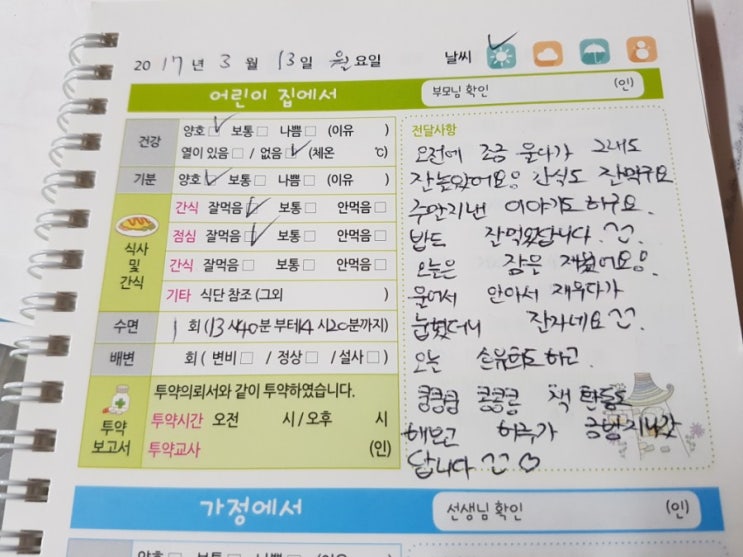 2017년 3월 13일 월요일 날씨
어린이 집에서
부모님 확인 (인)
건강 양호 보통 나쁨 (이유 )
열이 있음 / 없음 (체온 ℃)
기분 양호 보통 나쁨 (이유 )
식사 및 간식
간식 잘먹음 보통 안먹음
점심 잘먹음 보통 안먹음
간식 잘먹음 보통 안먹음
기타 식단 참조 (그외 )
수면 1 회 (13시40분 부터14시20분까지)
배변 회 ( 변비 / 정상 / 설사 )
투약 보고서
투약의뢰서와 같이 투약하였습니다.
투약시간 오전 시 / 오후 시
투약교사 (인)
전달사항
오전에 조금 울다가 그래도
잘놀았어요 간식도 잘먹구요
주말지낸 이야기도하구요.
밥도 잘먹었답니다.^^
오늘은 잠은 재웠어요
울어서 안아서 재우다가
눕혔더니 잘자네요^^
오늘 손유희도하고.
쿵쿵쿵 쿵쿵쿵 책 활동도
해보고 하루가 금방지나갔
답니다^^♡
가정에서
선생님 확인 (인)
양호 보통 나쁨 (이유